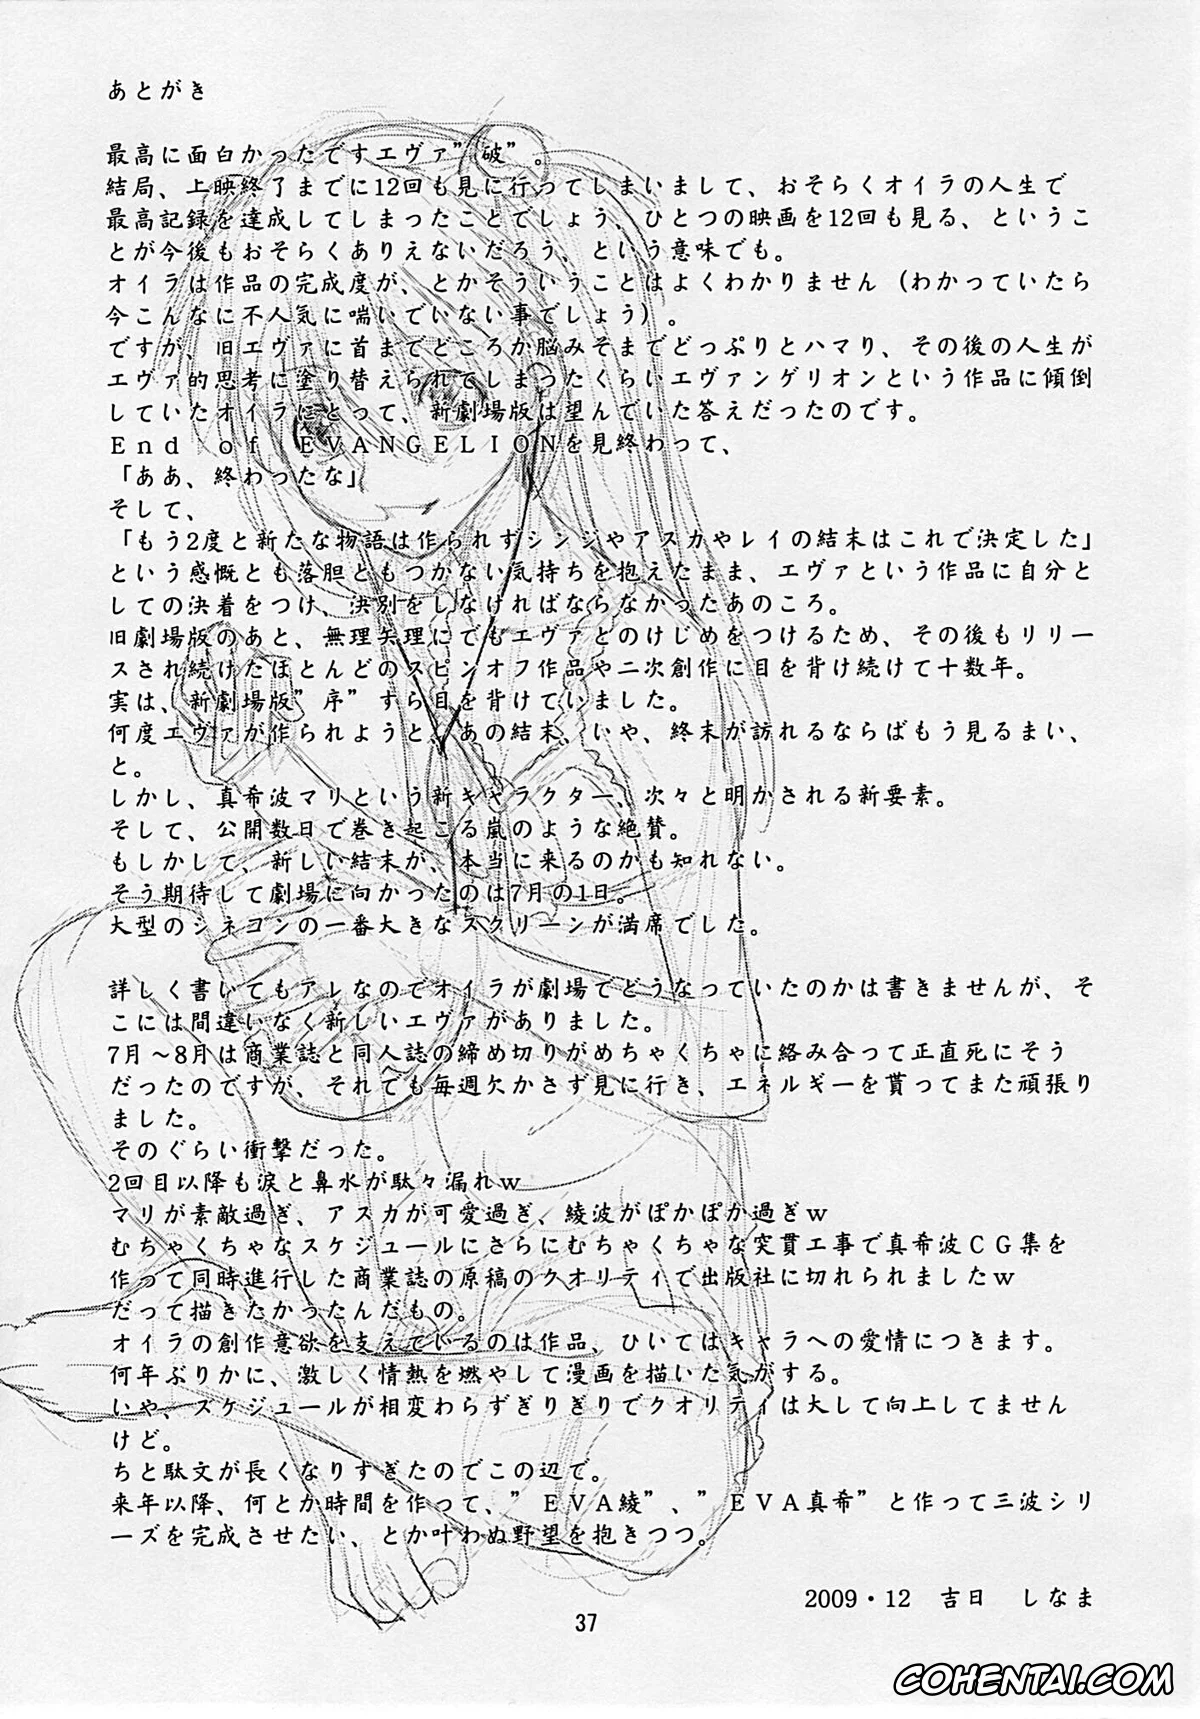 あとがき
最高に面白かったですエヴァ”破”。
結局、上映終了までに12回も見に行ってしまいまして、おそらくオイラの人生で
最高記録を達成してしまったことでしょう、ひとつの映画を12回も見る、というこ
とが今後もおそらくありえないだろう、という意味でも。
オイラは作品の完成度が、とかそういうことはよくわかりません（わかっていたら
今こんなに不人気に喘いでいない事でしょう）。
ですが、旧エヴァに首までどころか脳みそまでどっぷりとハマり、その後の人生が
エヴァ的思考に塗り替えられてしまったくらいエヴァンゲリオンという作品に傾倒
していたオイラにとって、新劇場版は望んでいた答えだったのです。
Ｅｎｄ　ｏｆ　ＥＶＡＮＧＥＬＩＯＮを見終わって、
「ああ、終わったな」
そして、
「もう2度と新たな物語は作られずシンジやアスカやレイの結末はこれで決定した」
という感慨とも落胆ともつかない気持ちを抱えたまま、エヴァという作品に自分と
しての決着をつけ、決別をしなければならなかったあのころ。
旧劇場版のあと、無理矢理にでもエヴァとのけじめをつけるため、その後もリリー
スされ続けたほとんどのスピンオフ作品や二次創作に目を背け続けて十数年。
実は、新劇場版”序”すら目を背けていました。
何度エヴァが作られようと、あの結末、いや、終末が訪れるならばもう見るまい、
と。
しかし、真希波マリという新キャラクター、次々と明かされる新要素。
そして、公開数日で巻き起こる嵐のような絶賛。
もしかして、新しい結末が、本当に来るのかも知れない。
そう期待して劇場に向かったのは7月の1日。
大型のシネコンの一番大きなスクリーンが満席でした。
詳しく書いてもアレなのでオイラが劇場でどうなっていたのかは書きませんが、そ
こには間違いなく新しいエヴァがありました。
7月～8月は商業誌と同人誌の締め切りがめちゃくちゃに絡み合って正直死にそう
だったのですが、それでも毎週欠かさず見に行き、エネルギーを貰ってまた頑張り
ました。
そのぐらい衝撃だった。
2回目以降も涙と鼻水が駄々漏れｗ
マリが素敵過ぎ、アスカが可愛過ぎ、綾波がぽかぽか過ぎｗ
むちゃくちゃなスケジュールにさらにむちゃくちゃな突貫工事で真希波ＣＧ集を
作って同時進行した商業誌の原稿のクオリティで出版社に切れられましたｗ
だって描きたかったんだもの。
オイラの創作意欲を支えているのは作品、ひいてはキャラへの愛情につきます。
何年ぶりかに、激しく情熱を燃やして漫画を描いた気がする。
いや、スケジュールが相変わらずぎりぎりでクオリティは大して向上してません
けど。
ちと駄文が長くなりすぎたのでこの辺で。
来年以降、何とか時間を作って、”ＥＶＡ綾”、”ＥＶＡ真希”と作って三波シリ
ーズを完成させたい、とか叶わぬ野望を抱きつつ。
2009・12　吉日　しなま
37
COHENTAI.COM